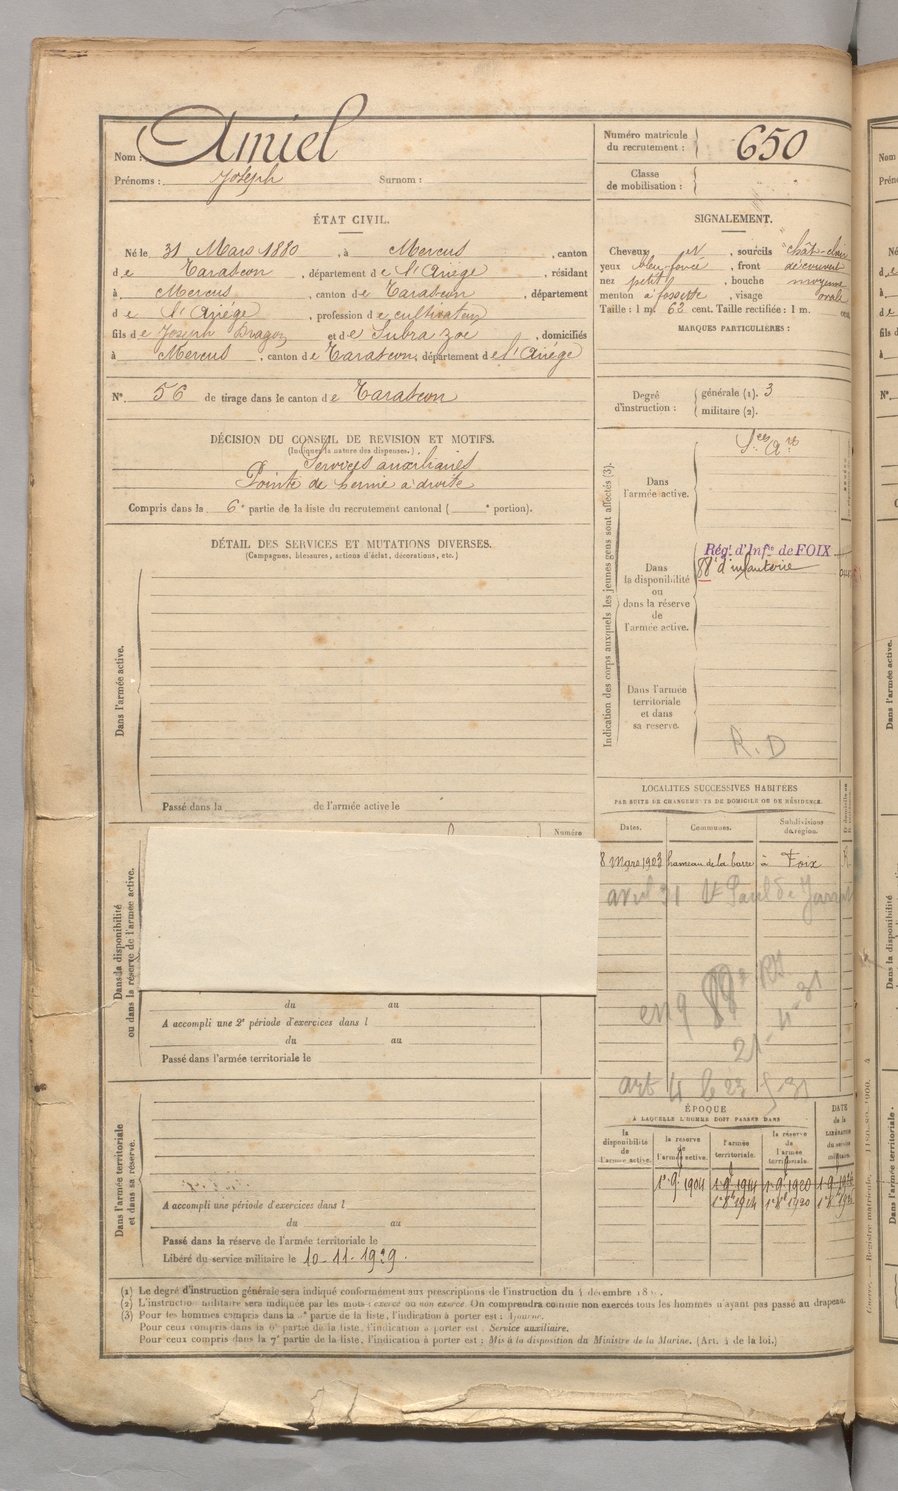 Nom : Amiel
Prénoms : Joseph Surnom :
Numéro matricule du recrutement : 650
Classe de mobilisation :
ÉTAT CIVIL.
Né le 31 Mars 1880, à Mercus, canton
de Tarascon, département de l'Ariège, résidant
à Mercus, canton de Tarascon, département
de l'Ariège, profession de cultivateur
fils de Joseph Dragon et de Subra Zoé, domiciliés
à Mercus, canton de Tarascon, département de l'Ariège
N° 56 de tirage dans le canton de Tarascon
DÉCISION DU CONSEIL DE REVISION ET MOTIFS.
(Indiquer la nature des dispenses.)
Services auxiliaires
Pointe de hernie à droite
Compris dans la 6e partie de la liste du recrutement cantonal ( e portion).
DÉTAIL DES SERVICES ET MUTATIONS DIVERSES.
(Campagnes, blessures, actions d'éclat, décorations, etc.)
Dans l'armée active.
Passé dans la de l'armée active le
Numéro
Dans la disponibilité
ou dans la réserve de l'armée active.
du au
A accompli une 2e période d'exercices dans l
du au
Passé dans l'armée territoriale le
Dans l'armée territoriale
et dans sa réserve.
A accompli une période d'exercices dans l
du au
Passé dans la réserve de l'armée territoriale le
Libéré du service militaire le 10-11-1929.
SIGNALEMENT.
Cheveux , sourcils chât-clair
yeux bleu-foncé, front découvert
nez petit, bouche moyenne
menton à fossette, visage ovale
Taille : 1 m. 62 cent. Taille rectifiée : 1 m. cent.
MARQUES PARTICULIÈRES :
Degré d'instruction :
générale (1). 3
militaire (2).
Indication des corps auxquels les jeunes gens sont affectés (3).
Dans l'armée active.
Sces Ares
Dans la disponibilité ou dans la réserve de l'armée active.
Rég.t d'Inf.ie de FOIX
88e d'infanterie
Dans l'armée territoriale et dans sa réserve.
R.D
LOCALITES SUCCESSIVES HABITEES
PAR SUITE DE CHANGEMENTS DE DOMICILE OU DE RÉSIDENCE.
Dates. Communes. Subdivisions de région.
8 Mars 1903 hameau de la barre à Foix
avril 31 St Paul de Jarrat
21-4-31
art 4
ÉPOQUE
À LAQUELLE L'HOMME DOIT PASSER DANS
la disponibilité de l'armée active.
la réserve de l'armée active.
l'armée territoriale.
la réserve de l'armée territoriale.
DATE de la LIBÉRATION du service militaire.
1-9-1904 1-9-1914 1-9-1920
1-8bre 1914 1-8bre 1920
(1) Le degré d'instruction générale sera indiqué conformément aux prescriptions de l'instruction du 4 décembre
(2) L'instruction militaire sera indiquée par les mots : exercé ou non exercé. On comprendra comme non exercés tous les hommes n'ayant pas passé au drapeau.
(3) Pour les hommes compris dans la partie de la liste, l'indication à porter est : Ajourné.
Pour ceux compris dans la 6e partie de la liste, l'indication à porter est : Service auxiliaire.
Pour ceux compris dans la 7e partie de la liste, l'indication à porter est : Mis à la disposition du Ministre de la Marine. (Art. 4 de la loi.)